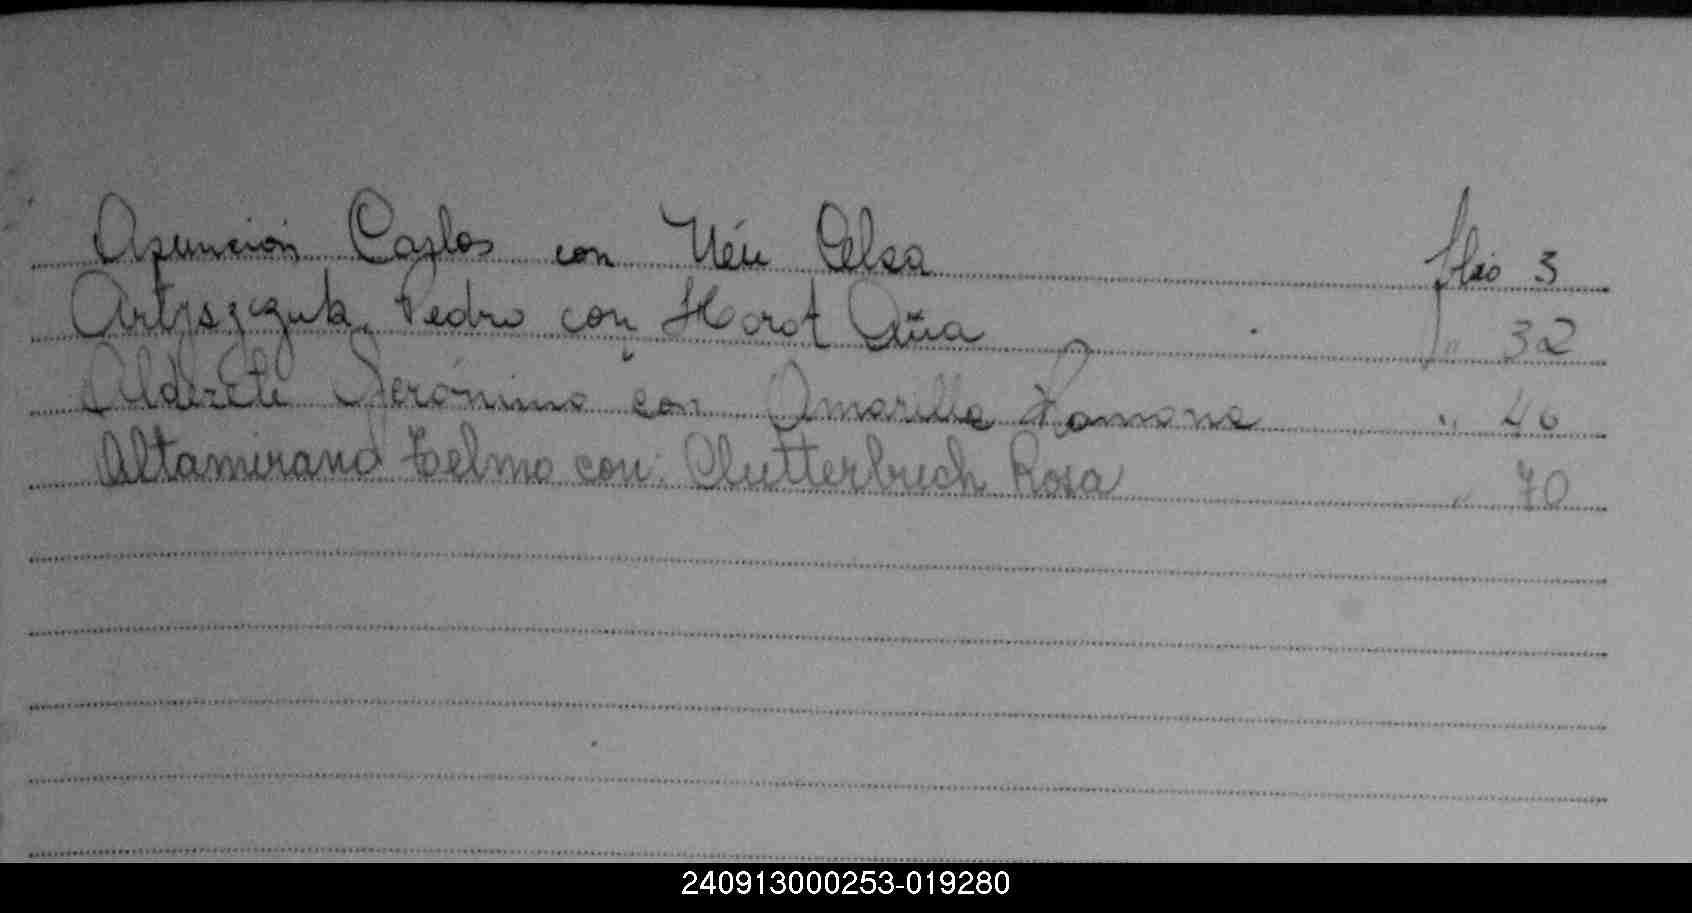 Asunción Carlos con Neu Celsa flio 3
Artyszczuk Pedro con Horot Ana " 32
Alderete Jerónimo con Amarilla Ramona " 40
Altamirano Telmo con Clutterbuch Rosa " 70
240913000253-019280